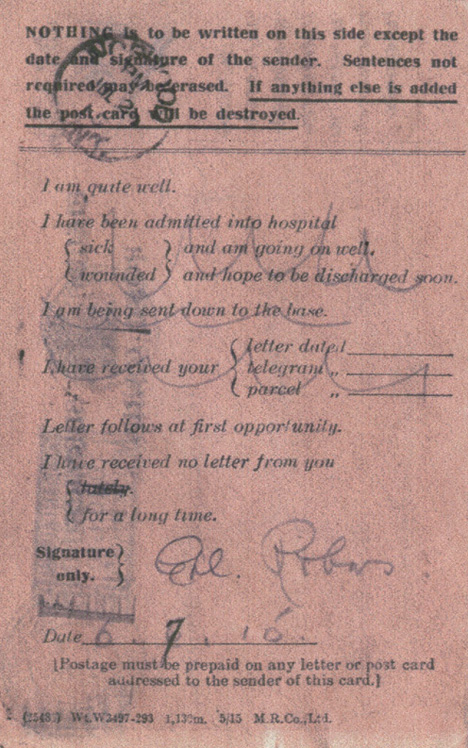 NOTHING is to be written on this side except the
date and signature of the sender. Sentences not
required may be erased. If anything else is added
the post card will be destroyed.
I am quite well.
I have been admitted into hospital
{ sick } and am going on well.
{ wounded } and hope to be discharged soon.
I am being sent down to the base.
I have received your { letter dated
telegram „
parcel „
Letter follows at first opportunity.
I have received no letter from you
{ lately.
{ for a long time.
Signature }
only. }
Date 6. 7. 15.
[Postage must be prepaid on any letter or post card
addressed to the sender of this card.]
Wt.W3497-293 5/15 M.R.Co.,Ltd.